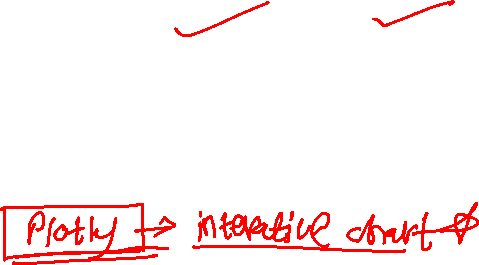 Plotly → interative chart